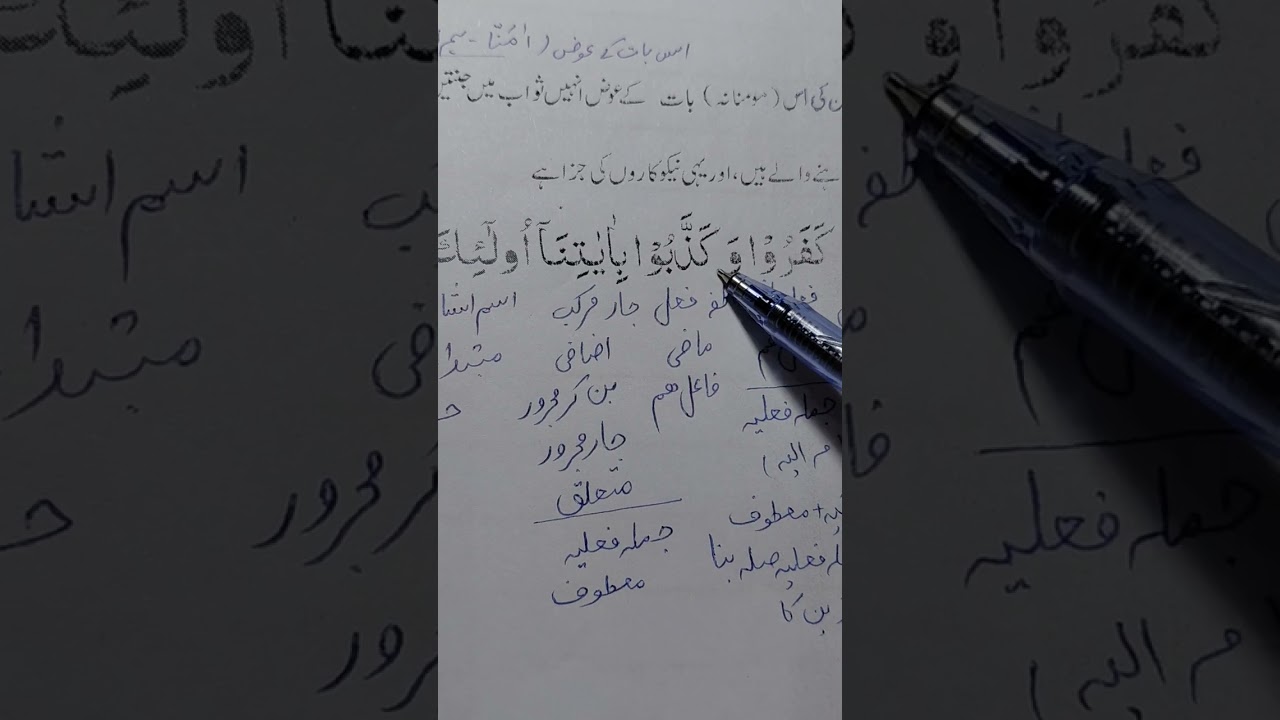 اس بات کے عوض (اٰمَنَّا - ہم
ن کی اس (مومنانہ) بات کے عوض انہیں ثواب میں جنتیں
ہنے والے ہیں، اور یہی نیکوکاروں کی جزا ہے
كَفَرُوْا وَ كَذَّبُوْا بِاٰيٰتِنَآ اُولٰٓئِكَ
فعل جار مرکب اسم اشا
ماضی اضافی مبتدا
فاعل ھم بن کر مجرور
جملہ فعلیہ جار مجرور
م الیہ) متعلق
+ معطوف جملہ فعلیہ
فعلیہ صلہ بنا معطوف
بن کا